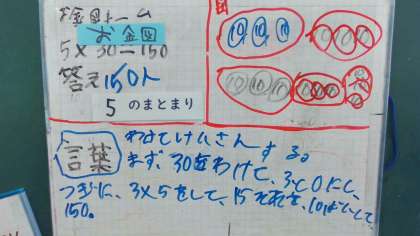 お金図
5×30=150
答え150人
5のまとまり
10 10 10
10 10 10
10 10 10
10 10 10
言葉
わけてけいさんする。
まず、30をわけて、3と0にし、
つぎに、3×5をして、15それを、10ばいして、
150。